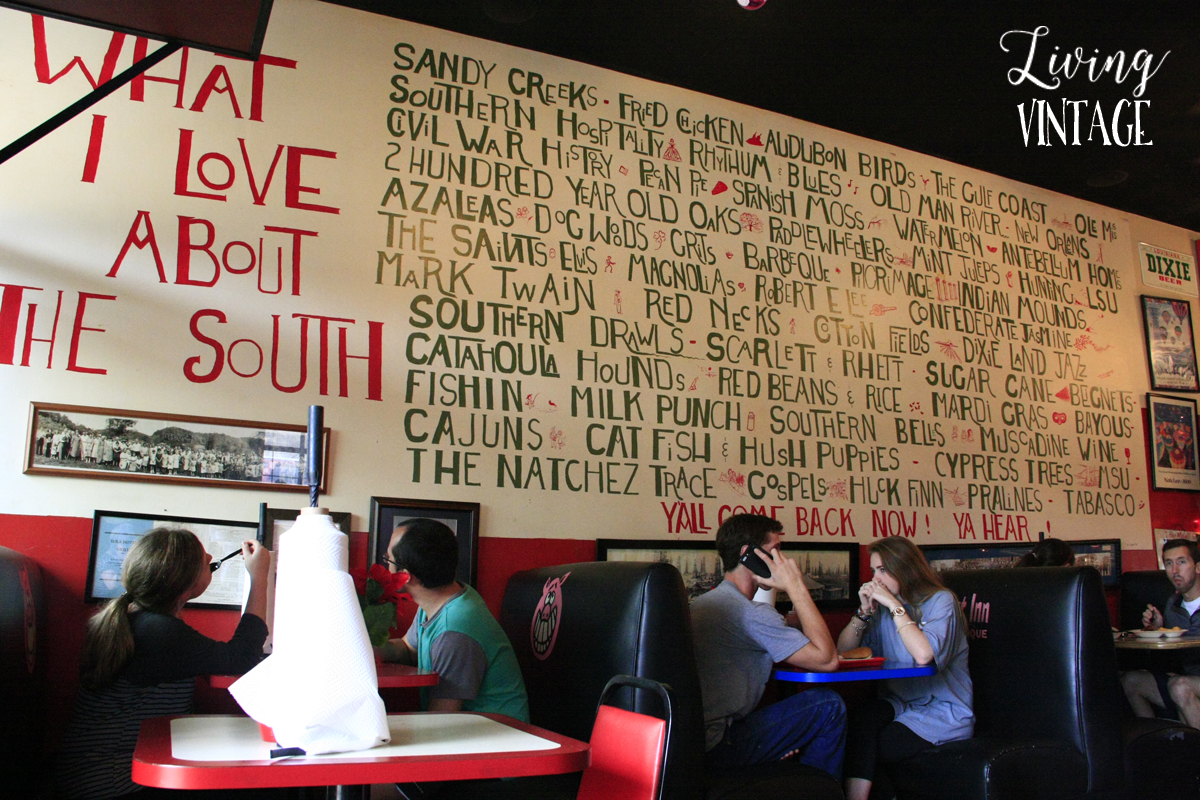 Living
VINTAGE
WHAT
I LOVE
ABOUT
THE SOUTH
SANDY CREEKS · FRIED CHICKEN AUDUBON BIRDS THE GULF COAST OLE MISS
SOUTHERN HOSPITALITY RHYTHUM & BLUES OLD MAN RIVER · NEW ORLANS
CIVIL WAR HISTORY · PECAN PIE SPANISH MOSS WATERMELON · ANTEBELLUM HOMES
2 HUNDRED YEAR OLD OAKS PADDLEWHEELERS MINT JULEPS HUNTING LSU
AZALEAS · DOGWOODS GRITS · BARBEQUE · PILGRIMAGE INDIAN MOUNDS
THE SAINTS · ELVIS MAGNOLIAS · ROBERT E LEE CONFEDERATE JASMINE
MARK TWAIN RED NECKS COTTON FIELDS DIXIE LAND JAZZ
SOUTHERN DRAWLS · SCARLETT & RHETT · SUGAR CANE BEGNETS ·
CATAHOULA HOUNDS RED BEANS & RICE · MARDI GRAS BAYOUS ·
FISHIN MILK PUNCH SOUTHERN BELLS · MUSCADINE WINE
CAJUNS CAT FISH & HUSH PUPPIES · CYPRESS TREES MSU ·
THE NATCHEZ TRACE GOSPELS HUCK FINN PRALINES · TABASCO
Y'ALL COME BACK NOW! YA HEAR!
DIXIE
BEER
Inn